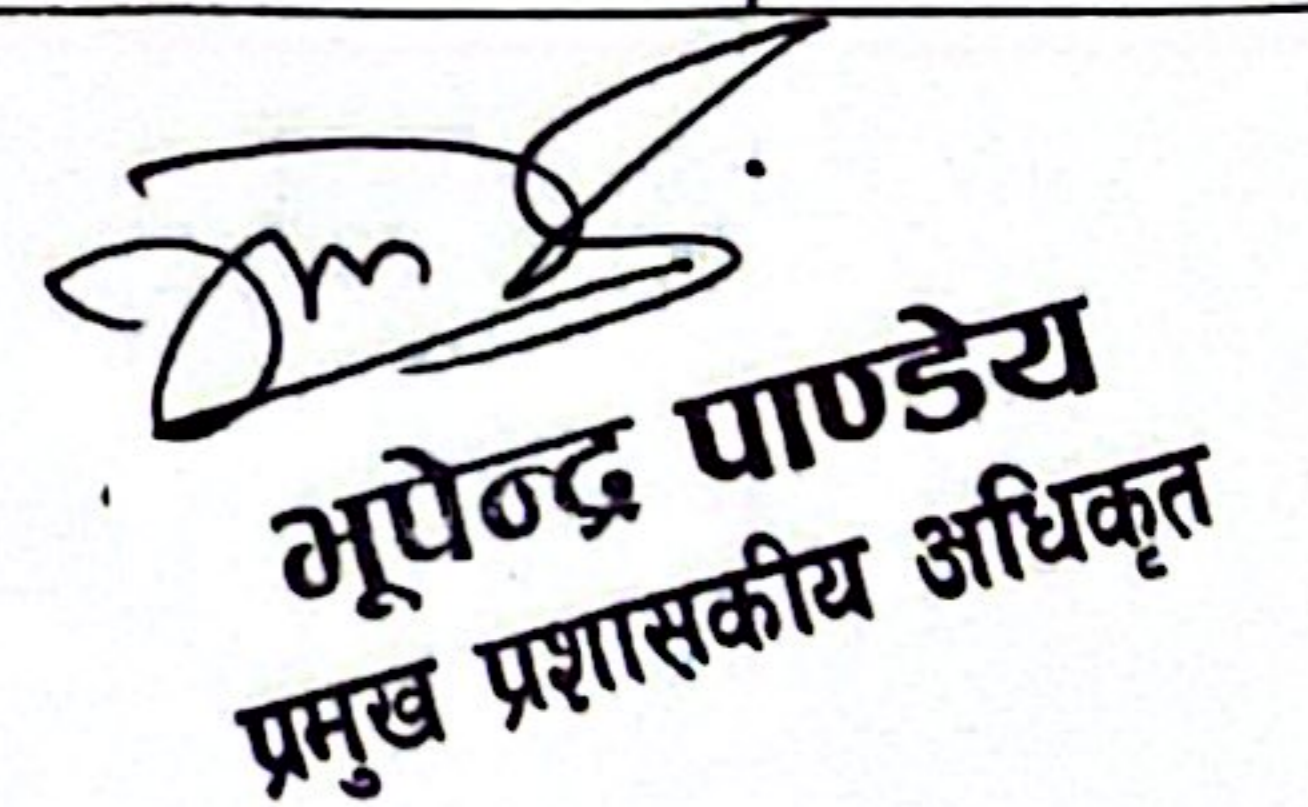 भूपेन्द्र पाण्डेय
प्रमुख प्रशासकीय अधिकृत